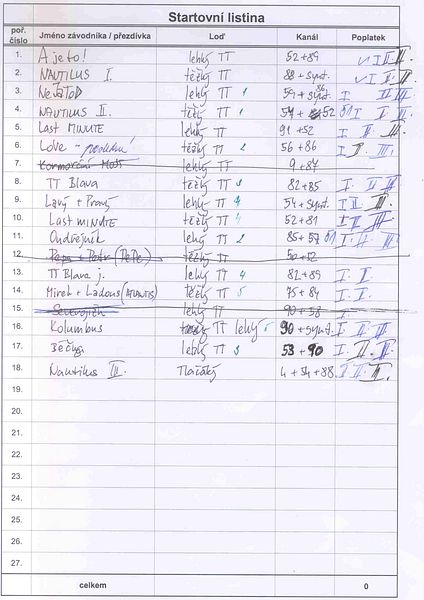 Startovní listina
poř. číslo Jméno závodníka / přezdívka Loď Kanál Poplatek
1. A je to! lehký TT 52+89 I II III
2. NAUTILUS I. těžký TT 88 + synt. I. II III
3. lehký TT 1 I II III
4. NAUTILUS II. těžký TT 1 I II III
5. LAST MINUTE lehký TT 91 + 52 I II III
6. LOVE těžký TT 2 56 + 86 I II III.
7. lehký TT 9 + 87
8. TT Blava těžký TT 3 82+85 I. II III
9. Lavý + Pravý lehký TT 54 + synt. I. II III
10. Last MINUTE těžký TT 4 52 + 81 I II III
11. Ondřejník lehký TT 2 85 + 57 I. II III
12. Pepa + Petr (PePe) těžký TT 50+52
13. TT Blava j. lehký TT 4 82+89 I. I.
14. Mirek + Ladous (ATLANTIS) těžký TT 5 75 + 84 I. I.
15. lehký TT 90 + 58
16. Kolumbus TT lehký 90 + synt. I. II III
17. Bečka lehký TT 3 53 + 90 I. II. III
18. Nautilus III. Tlačáký 4 + 54 + 88 I II. III.
19.
20.
21.
22.
23.
24.
25.
26.
27.
celkem 0